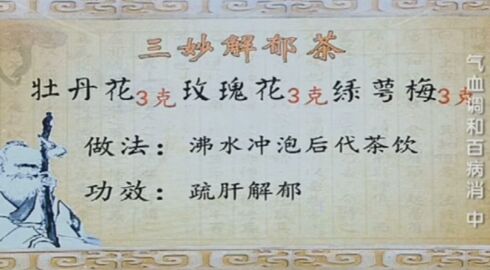 三妙解郁茶
牡丹花3克 玫瑰花3克 绿萼梅3克
做法：沸水冲泡后代茶饮
功效：疏肝解郁
气血调和百病消 中